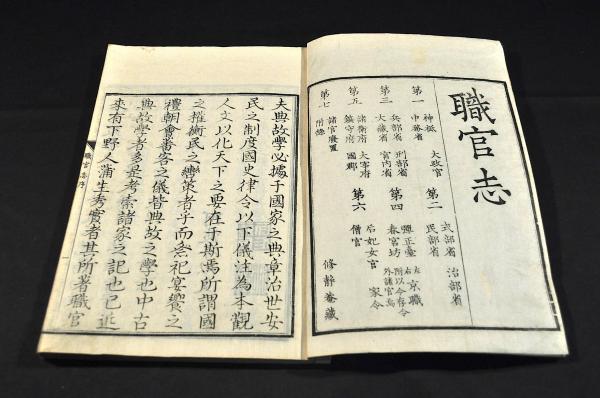 職官志
第一 神祇 大政官
中務省
第二 式部省 治部省
民部省
第三 兵部省 刑部省
大藏省 宮内省
第四 彈正臺 左右京職
春宮坊
第五 諸衛府 大宰府
鎮守府 國郡
第六 后妃女官 家令
僧官
第七 諸官廢置
附錄
修靜菴藏
夫典故學必據于國家之典章治世安
民之制度國史律令以下儀注為本觀
人文以化天下之要在于斯焉所謂國
之權衡民之轡策者乎而祭祀宴饗之
禮朝會蕃客之儀皆典故之學也中古
典故學者多是考索諸家之記也已近
來有下野人蒲生秀實者其所著職官
職官志序